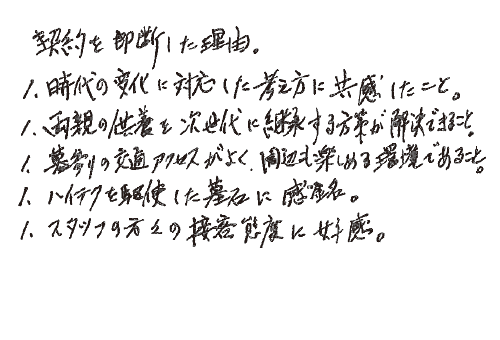 契約を即断した理由。
1. 時代の変化に対応した考え方に共感したこと。
1. 両親の供養を次世代に継承する方策が解決できること。
1. 墓参りの交通アクセスがよく、周辺も楽しめる環境であること。
1. ハイテクを駆使した墓石に感銘。
1. スタッフの方々の接客態度に好感。